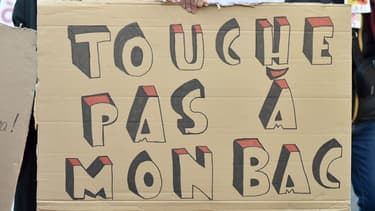 TOUCHE
PAS À
MON BAC